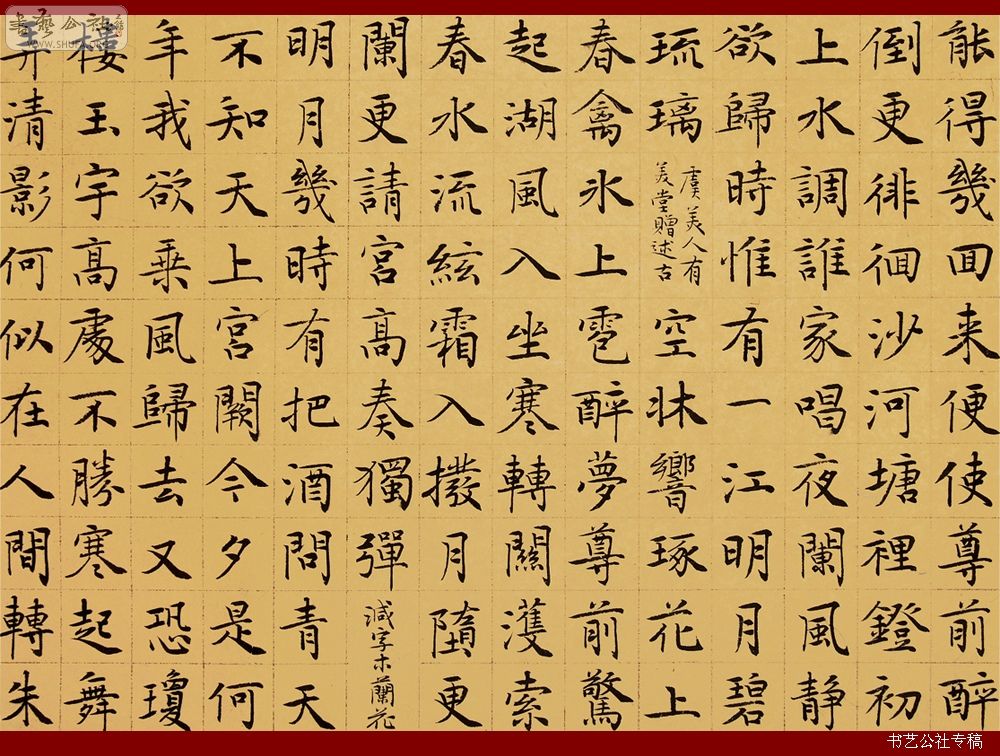 能得幾囬来便使尊前醉
倒更徘徊沙河塘裡鐙初
上水調誰家唱夜闌風静
欲歸時惟有一江明月碧
琉璃
虞美人有
美堂贈述古
空牀響琢花上
春禽氷上雹醉夢尊前驚
起湖風入坐寒轉關濩索
春水流絃霜入撥月墮更
闌更請宮高奏獨彈
減字木蘭花
明月幾時有把酒問青天
不知天上宮闕今夕是何
年我欲乘風歸去又恐瓊
樓玉宇高處不勝寒起舞
弄清影何似在人間轉朱
書藝公社
www.SHUFA.ORG
书艺公社专稿